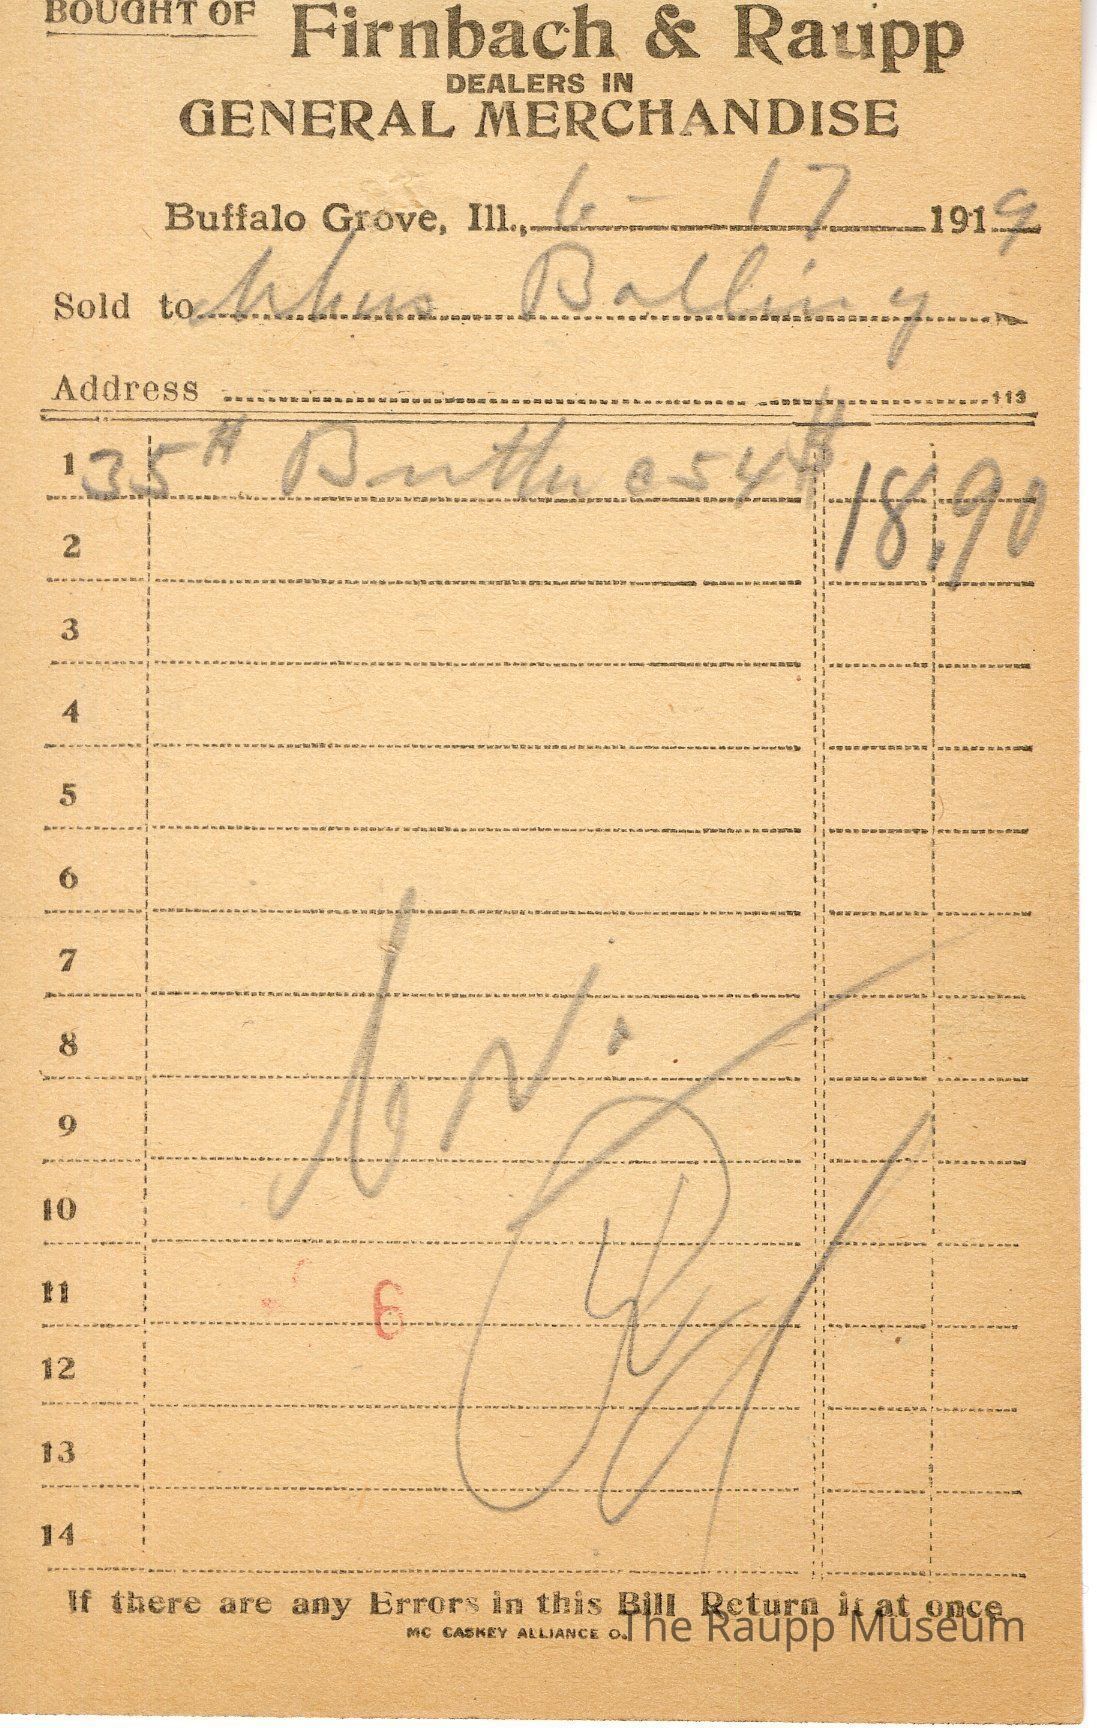 BOUGHT OF Firnbach & Raupp
DEALERS IN
GENERAL MERCHANDISE
Buffalo Grove, Ill., 6-17 1919
Sold to
Address 113
1 35 # Butter @ 54 18.90
2
3
4
5
6
7
8
9
10
11
6
12
13
14
If there are any Errors in this Bill Return it at once
MC CASKEY ALLIANCE O.
The Raupp Museum